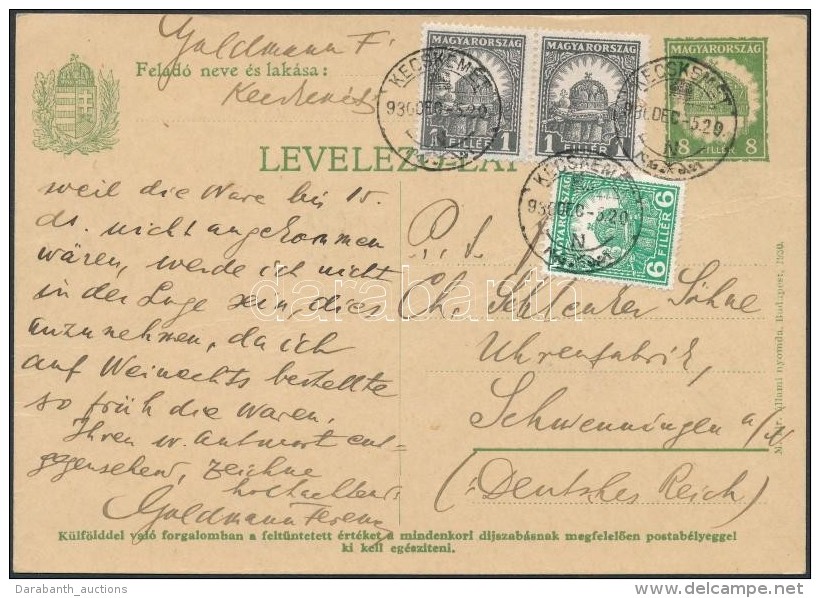 Goldmann F.
Feladó neve és lakása:
Kecskemét
LEVELEZŐ-LAP
MAGYARORSZÁG
1 FILLÉR 1
MAGYARORSZÁG
1 FILLÉR 1
MAGYARORSZÁG
8 FILLÉR 8
MAGYARORSZÁG
6 FILLÉR 6
KECSKEMÉT
930DEC-5.20
N
KECSKEMÉT
930DEC-5.20.
N
KECSKEMÉT
930DEC-5.20
N
weil die Ware bis 15.
ds. nicht angekommen
wären, werde ich nicht
in der Lage sein, dies
anzunehmen, da ich
auf Weinachts bestellte
so früh die Waren,
Ihren w. Antwort ent-
gegensehend, zeichne
hochachtend:
Goldmann Ferenc
Ch. Schlenker Söhne
Uhrenfabrik,
Schwenningen a/N
(: Deutsches Reich)
M. kir. állami nyomda, Budapest, 1930.
Külfölddel való forgalomban a feltüntetett értéket a mindenkori díjszabásnak megfelelően postabélyeggel
ki kell egészíteni.
darabanth.com
Darabanth_auctions
delcampe.net